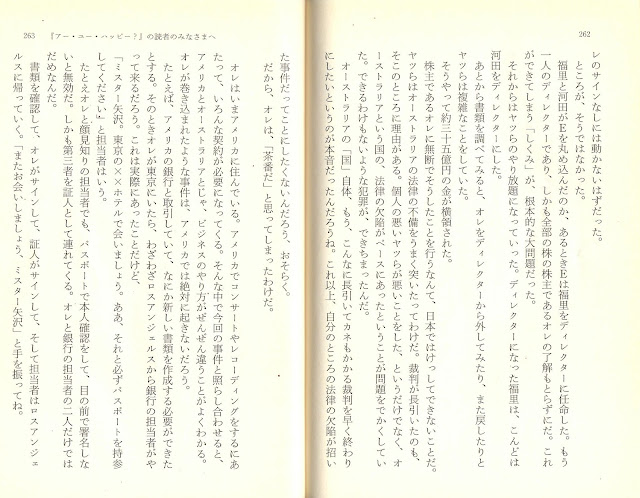 262
レのサインなしには動かないはずだった。
ところが、そうではなかった。
福里と河田がEを丸め込んだのか、あるときEは福里をディレクターに任命した。もう
一人のディレクターであり、しかも全部の株の株主であるオレの了解もとらずにだ。これ
ができてしまう「しくみ」が、根本的な大問題だった。
それからはヤツらのやり放題になっていった。ディレクターになった福里は、こんどは
河田をディレクターにした。
あとから書類を調べてみると、オレをディレクターから外してみたり、また戻したりと
ヤツらは複雑なことをしていた。
そうやって約三十五億円の金が横領された。
株主であるオレに無断でそうしたことを行うなんて、日本ではけっしてできないことだ。
ヤツらはオーストラリアの法律の不備をうまく突いたってわけだ。裁判が長引いたのも、
そこのところに理由がある。個人の悪いヤツらが悪いことをした、というだけでなく、オ
ーストラリアという国の、法律の欠陥がベースにあったということが問題をでかくしてい
た。できるわけもないような犯罪が、できちまったんだ。
オーストラリアの「国」自体、もう、こんなに長引いてカネもかかる裁判を早く終わり
にしたいというのが本音だったんだろうね。これ以上、自分のところの法律の欠陥が招い
263　『アー・ユー・ハッピー?』の読者のみなさまへ
た事件だってことにしたくないんだろう、おそらく。
だから、オレは、「茶番だ」と思ってしまったわけだ。
オレはいまアメリカに住んでいる。アメリカでコンサートやレコーディングをするにあ
たって、いろんな契約が必要になってくる。そんな中で今回の事件と照らし合わせると、
アメリカとオーストラリアとじゃ、ビジネスのやり方がぜんぜん違うことがよくわかる。
オレが巻き込まれたような事件は、アメリカでは絶対に起きないだろう。
たとえば、アメリカの銀行と取引していて、なにか新しい書類を作成する必要ができた
とする。そのときオレが東京にいたら、わざわざロスアンジェルスから銀行の担当者がや
って来るだろう。これは実際にあったことだけど、
「ミスター矢沢。東京の××ホテルで会いましょう。ああ、それと必ずパスポートを持参
してください」と担当者はいう。
たとえオレと顔見知りの担当者でも、パスポートで本人確認をして、目の前で署名しな
いと無効だ。しかも第三者を証人として連れてくる。オレと銀行の担当者の二人だけでは
だめなんだ。
書類を確認して、オレがサインして、証人がサインして、そして担当者はロスアンジェ
ルスに帰っていく。「またお会いしましょう、ミスター矢沢」と手を振ってね。